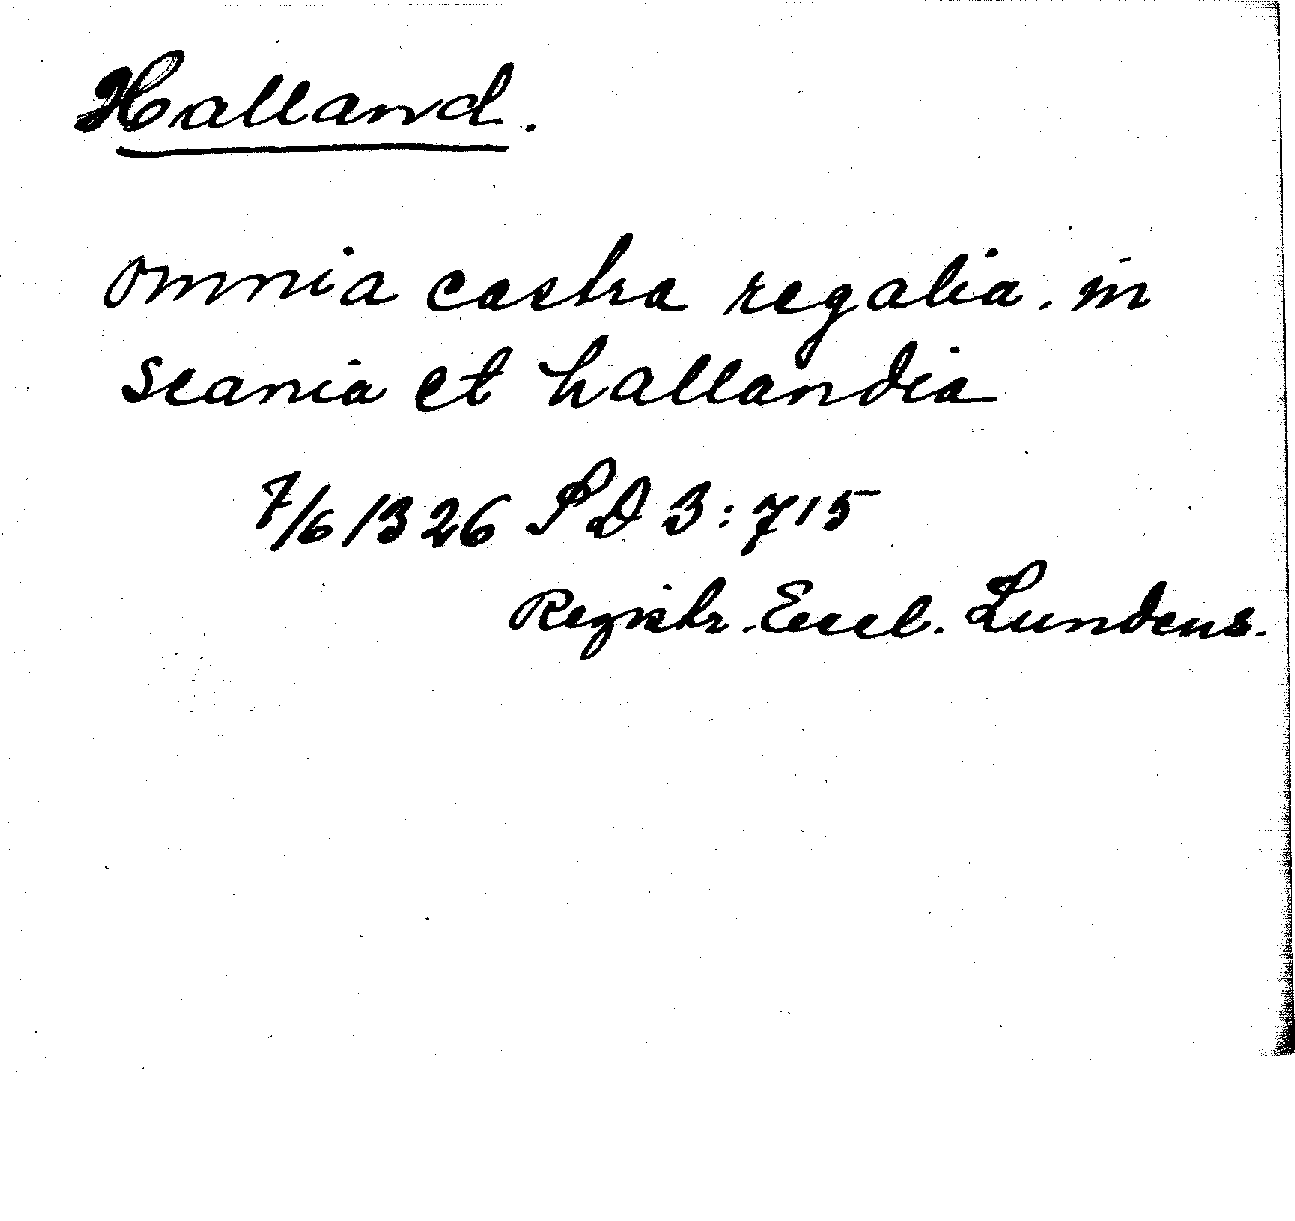 Halland.
omnia castra regalia. in
scania et hallandia
7/6 1326 SD 3:715
Registr. Eccl. Lundens.